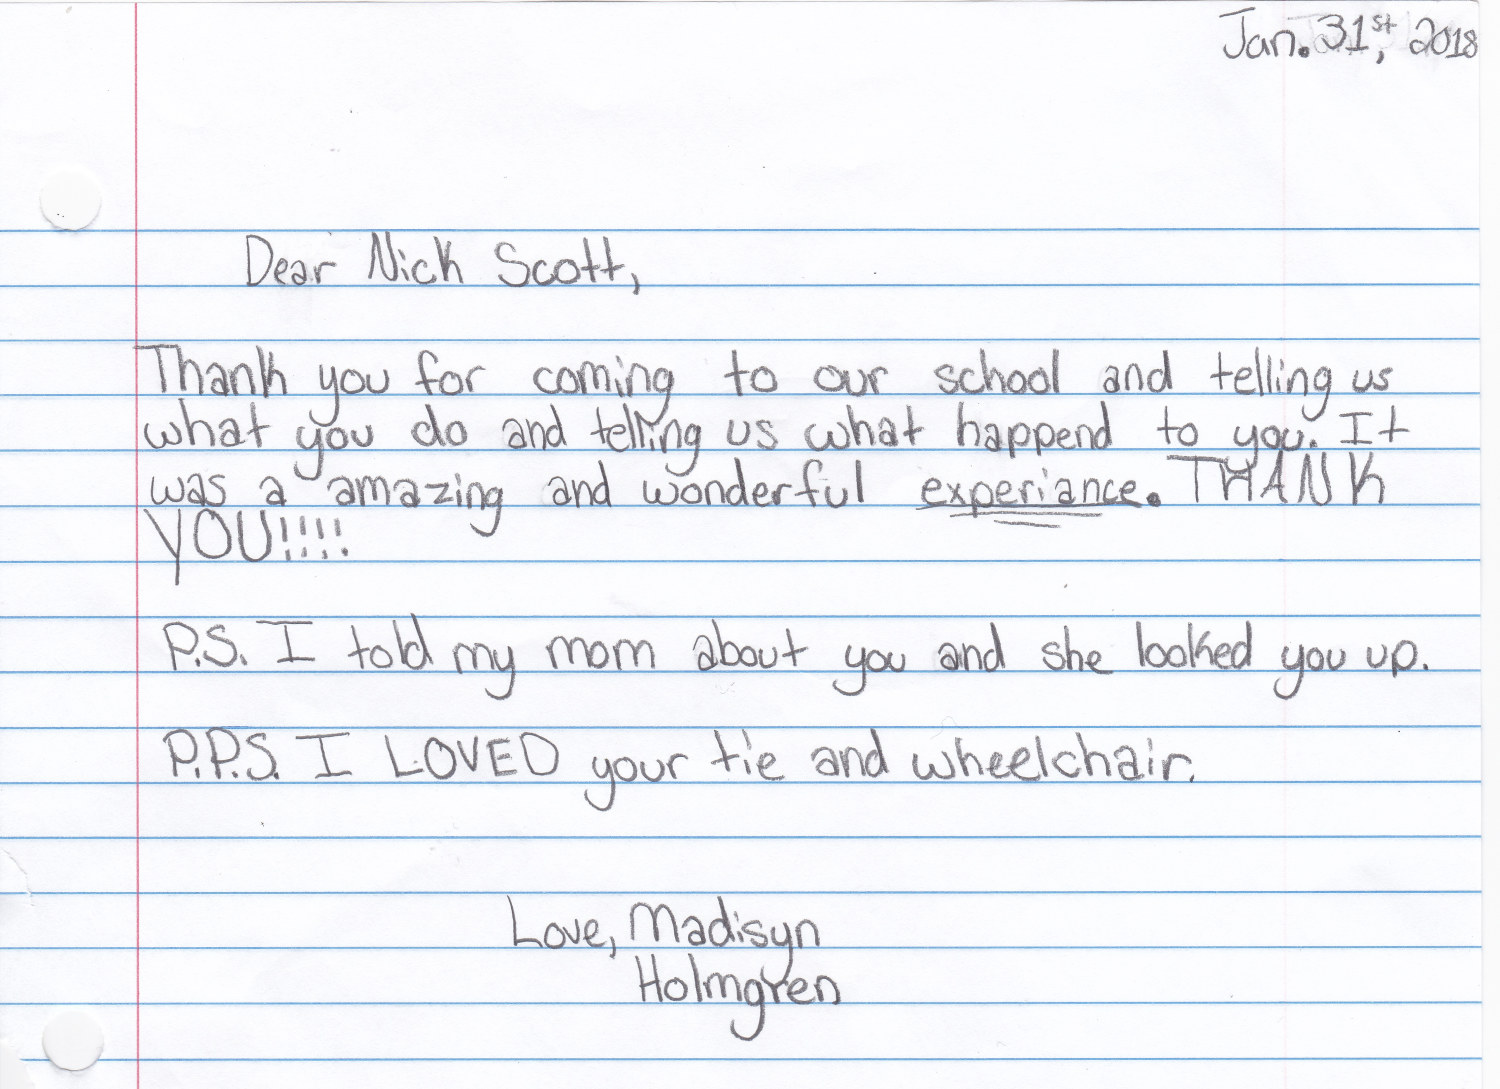 Jan. 31st, 2018
Dear Nick Scott,
Thank you for coming to our school and telling us
what you do and telling us what happend to you. It
was a amazing and wonderful experiance. THANK
YOU!!!!
P.S. I told my mom about you and she looked you up.
P.P.S. I LOVED your tie and wheelchair.
Love, Madisyn
Holmgren